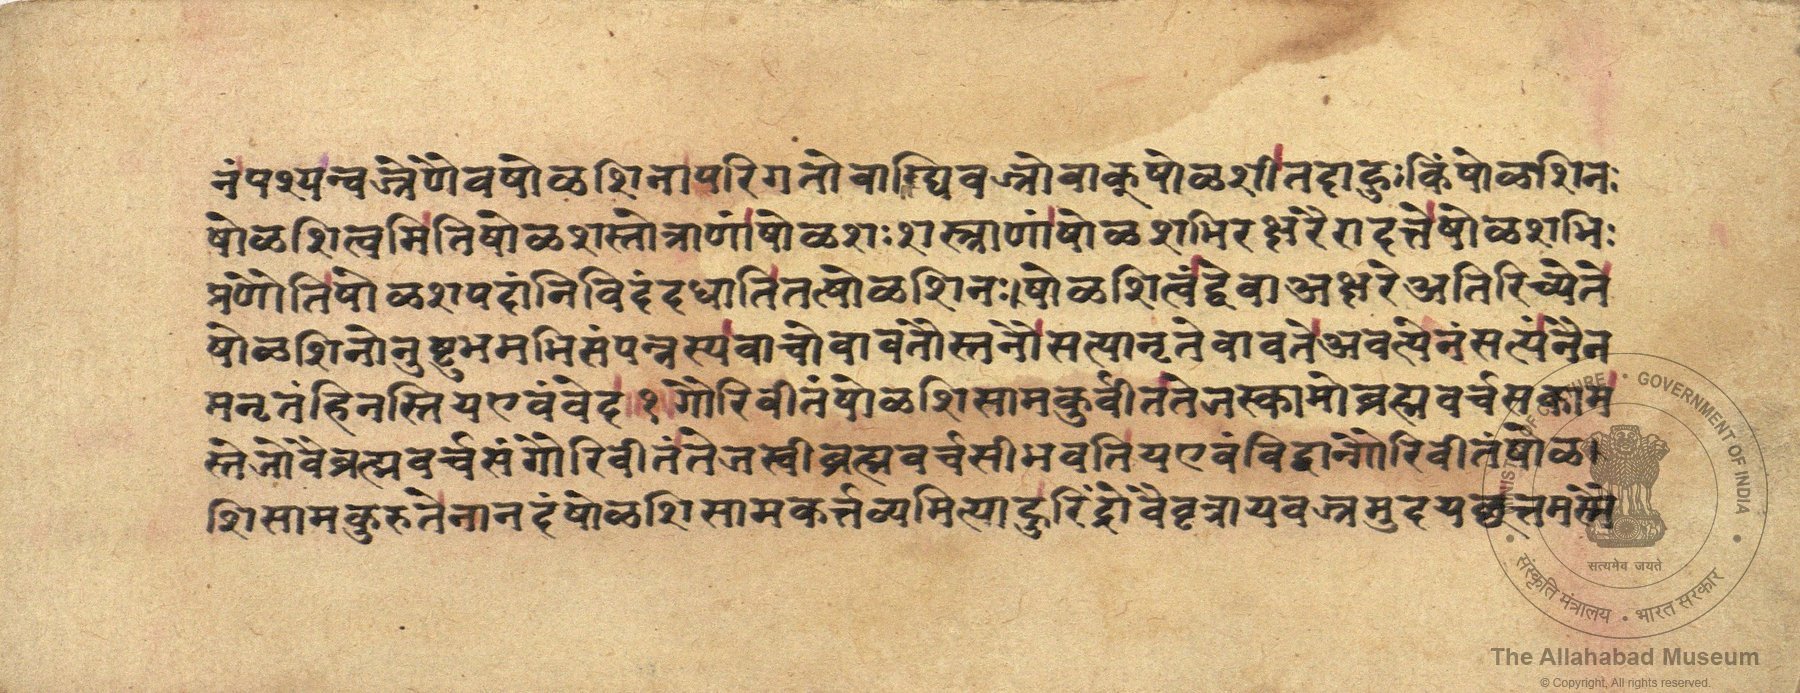 नंपश्यन्वज्रेणैवषोळशिनापरिगतोवाग्घिवज्रोवाक्षोळशीतदाहुःकिंषोळशिनः
षोळशित्वमितिषोळशस्तोत्राणांषोळशःशस्त्राणांषोळशभिरक्षरैरादत्तेषोळशभिः
प्रणौतिषोळशपदांनिविदंदधातितत्षोळशिनः।षोळशित्वंद्वेवाअक्षरेअतिरिच्येते
षोळशिनोनुष्टुभमभिसंपन्नस्यवाचोवावतौस्तनौसत्यानृतेवावतेअवत्येनंसत्यंनैन
मनृतंहिनस्तियएवंवेद॥१॥गौरिवीतंषोळशिसामकुर्वीततेजस्कामोब्रह्मवर्चसकाम
स्तेजोवैब्रह्मवर्चसंगौरिवीतंतेजस्वीब्रह्मवर्चसीभवतियएवंविद्वान्गौरिवीतंषोळ।
शिसामकुरुतेनानदंषोळशिसामकर्त्तव्यमित्याहुरिंद्रोवैवृत्रायवज्रमुदयछत्तमस्मै
MINISTRY OF CULTURE • GOVERNMENT OF INDIA
सत्यमेव जयते
संस्कृति मंत्रालय • भारत सरकार
The Allahabad Museum
© Copyright, All rights reserved.